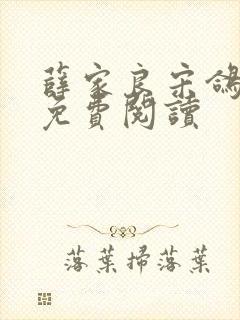 薛家良宋鴿
免費閱讀
落葉掃落葉